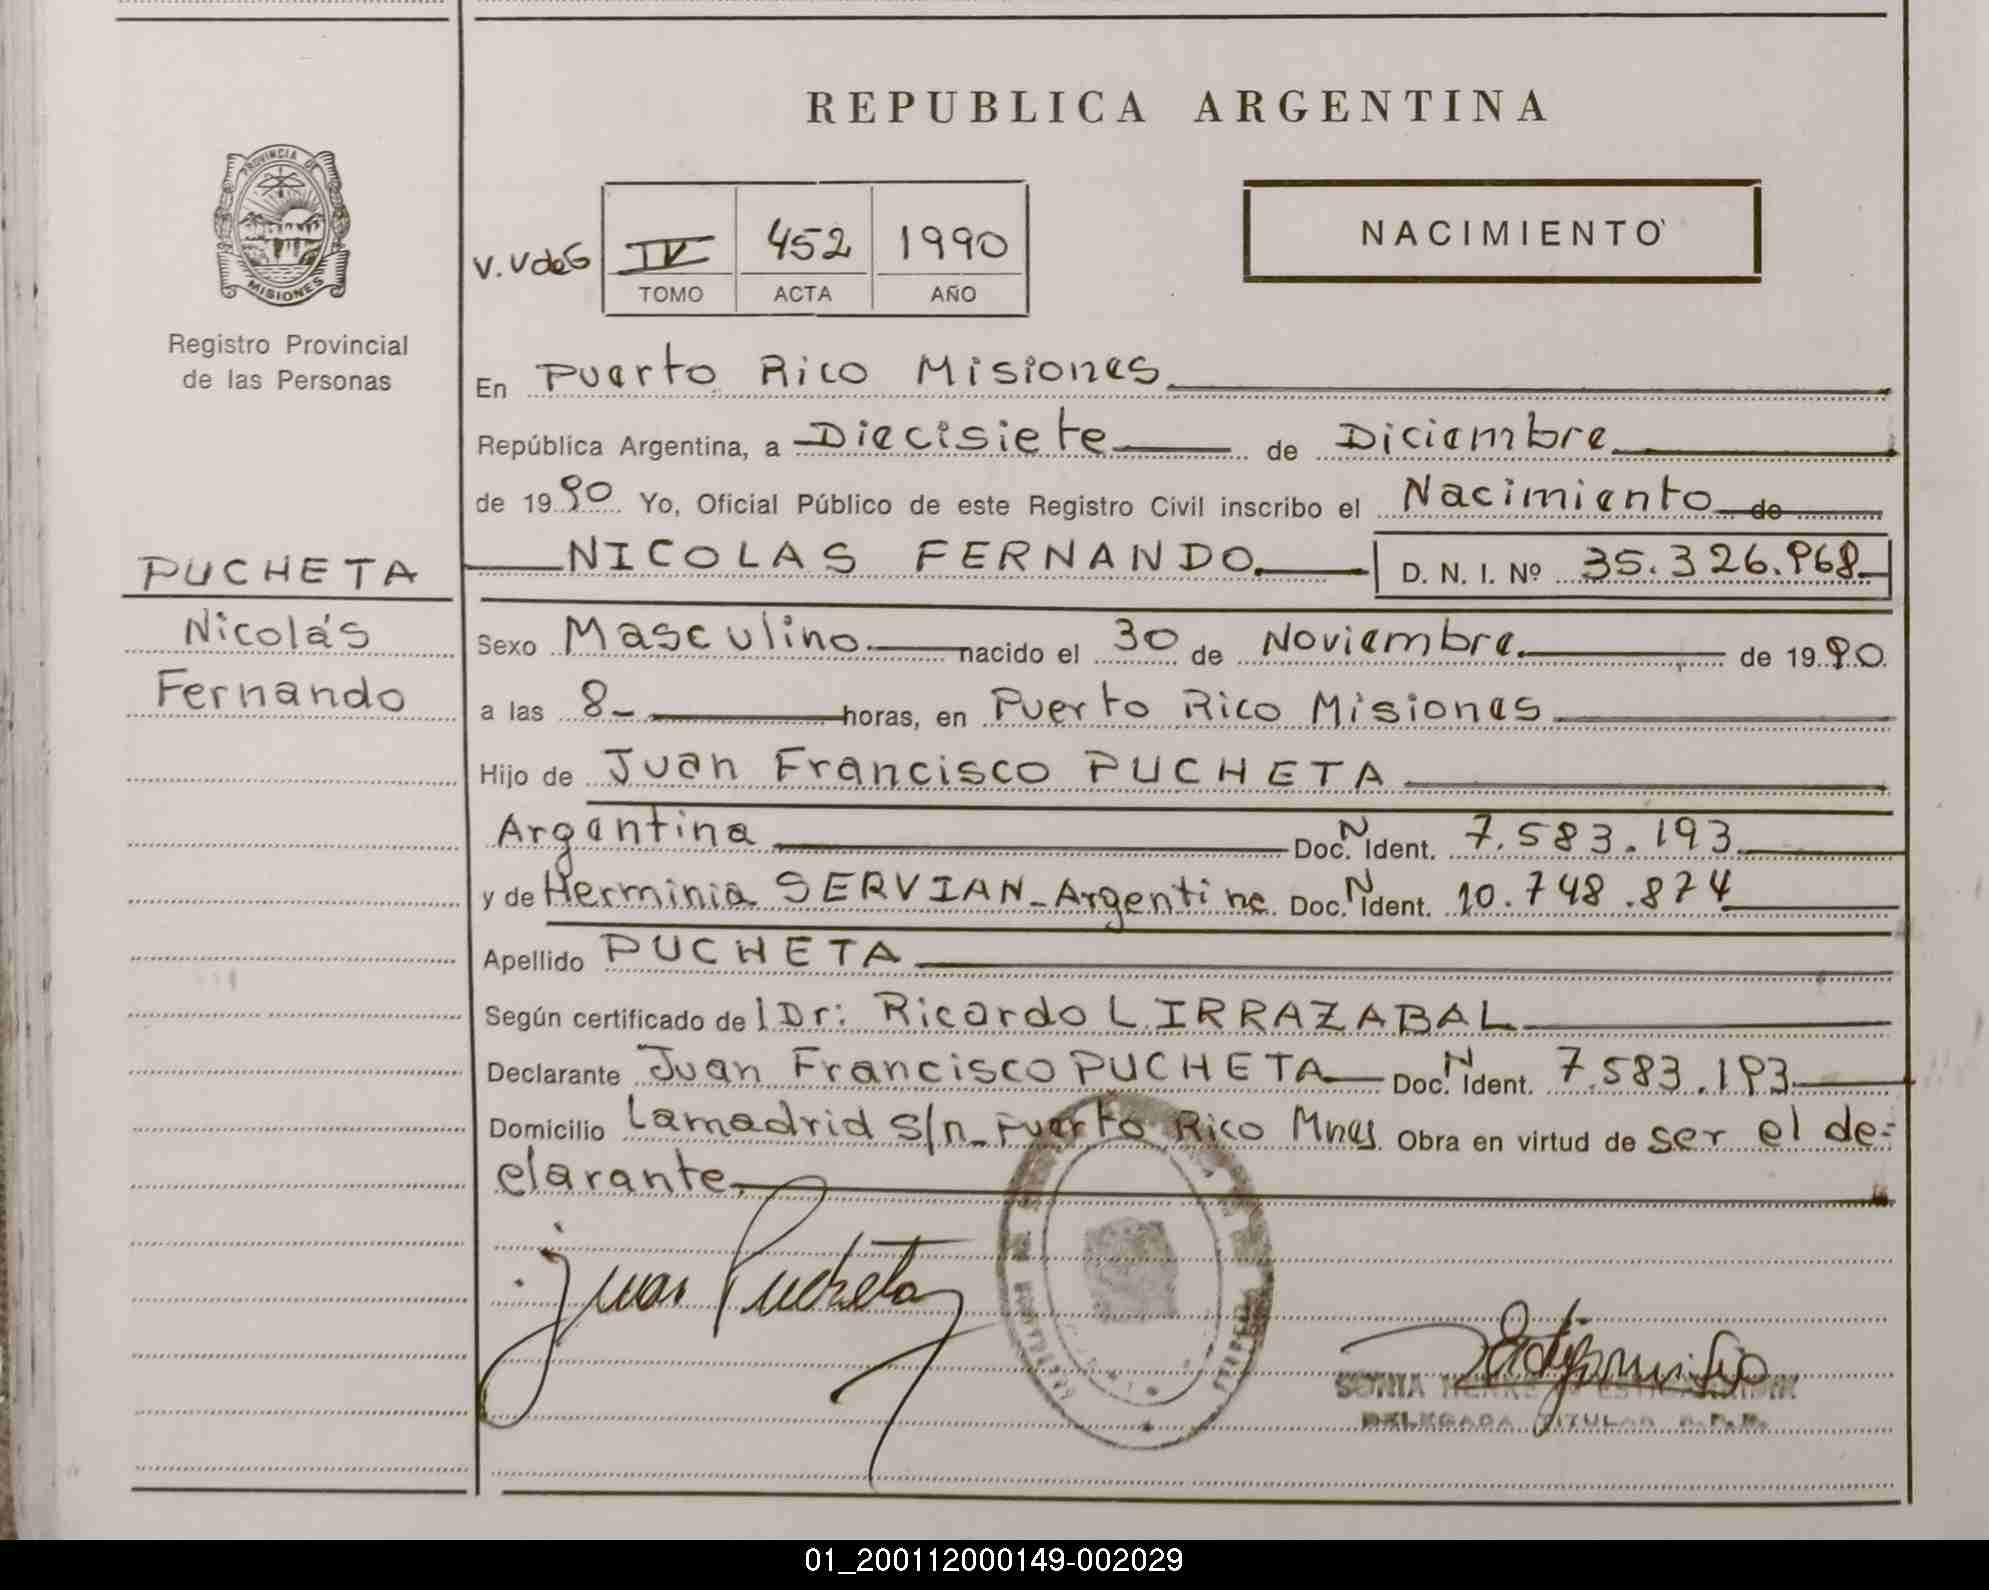 REPUBLICA ARGENTINA
PROVINCIA DE
MISIONES
Registro Provincial
de las Personas
V.VdeG
IV 452 1990
TOMO ACTA AÑO
NACIMIENTO
PUCHETA
Nicolás
Fernando
En Puerto Rico Misiones
República Argentina, a Diecisiete de Diciembre
de 1990 Yo, Oficial Público de este Registro Civil inscribo el Nacimiento de
NICOLAS FERNANDO D. N. I. Nº 35.326.968
Sexo Masculino nacido el 30 de Noviembre de 1990
a las 8 horas, en Puerto Rico Misiones
Hijo de Juan Francisco PUCHETA
Argentina Doc. N Ident. 7.583.193
y de Herminia SERVIAN - Argentina Doc. N Ident. 10.748.874
Apellido PUCHETA
Según certificado del Dr: Ricardo L IRRAZABAL
Declarante Juan Francisco PUCHETA Doc. N Ident. 7.583.193
Domicilio Lamadrid s/n - Puerto Rico Mnes. Obra en virtud de ser el de=
clarante
Juan Pucheta
SONIA
DELEGADA TITULAR R.P.P.
01_200112000149-002029